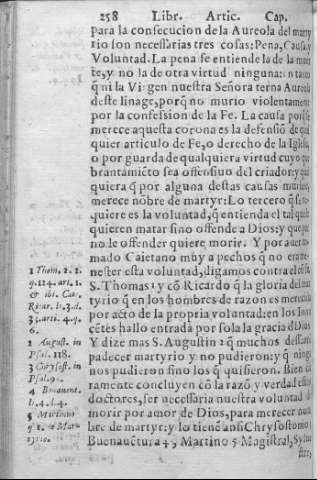 258 Libr. Artic. Cap.
para la consecucion de la Aureola del marty
rio son necessarias tres cosas; Pena, Causa, y
Voluntad. La pena se entiende la de la muer
te, y no la de otra virtud ninguna: n tanto
q̃ ni la Virgen nuestra Señora terna Aureola
deste linage, porq̃ no murio violentamente
por la confession de la Fe. La causa porq̃ se
merece aquesta corona es la defensiõ de qual
quier articulo de Fe, o derecho de la Iglesia,
o por guarda de qualquiera virtud cuyo que
brantamiẽto sea offensiuo del criador: y qual
quiera q̃ por alguna destas causas muriere,
merece nõbre de martyr: Lo tercero q̃ se re-
quiere es la voluntad, q̃ entienda el tal que le
quieren matar sino offende a Dios: y que por
no le offender quiere morir. Y por auer
mado Caietano muy a pechos q̃ no era me
nester esta voluntad, digamos contra el cõ
S. Thomas 1 y cõ Ricardo q̃ la gloria del mar
tyrio q̃ en los hombres de razon es merecida
por acto de la propria voluntad: en los Inno
cẽtes hallo entrada por sola la gracia d Dios
Y dize mas S. Augustin 2 q̃ muchos dessearõ
padecer martyrio y no pudieron: y q̃ ningu
nos pudieron sino los q̃ quisieron. Bien cla
ramente concluyen cõ la razõ y verdad estos
doctores, ser necessaria nuestra voluntad de
morir por amor de Dios, para merecer nom
bre de martyr: y lo tienẽ ansi Chrysostomo 3
Buenauẽtura 4, Martino 5 Magistral, Sylue
stre,
1 Thom. 2. 2.
q. 124. art. 1.
& ibi. Cai.
Ricar. li. 3. d.
31. arti. 4. q.
6.
2 August. in
Psal. 118.
3 Chrysost. in
Psal. 9.
4 Bonauent.
li. 4. d. 4.
5 Martinus
q. 1. de Mar
tyrio.